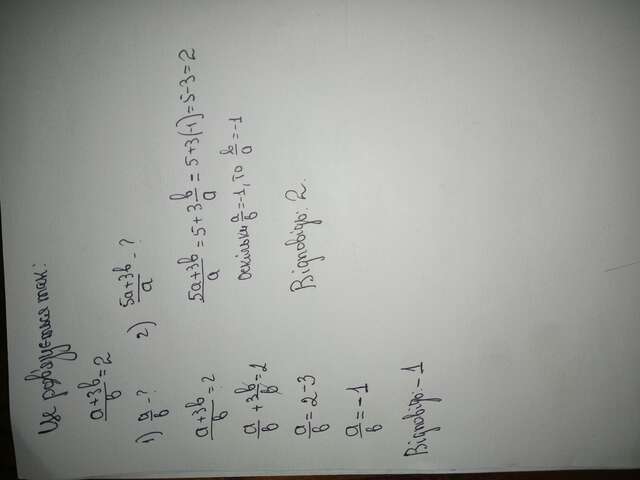 Це розвʼязується так:
a+3b/b=2
1) a/b - ?
a+3b/b=2
a/b+3b/b=2
a/b=2-3
a/b=-1
Відповідь: -1
2) 5a+3b/a - ?
5a+3b/a=5+3b/a=5+3(-1)=5-3=2
оскільки a/b=-1, то b/a=-1
Відповідь: 2.